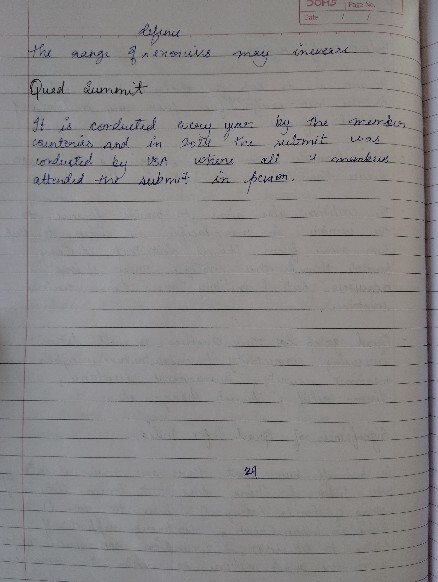 DOMS
Page No.
Date / /
define
the range of resources may increase
Quad Summit
It is conducted every year by the member
countories and in 2024 the submit was
conducted by USA where all 4 members
attended the submit in person.
29